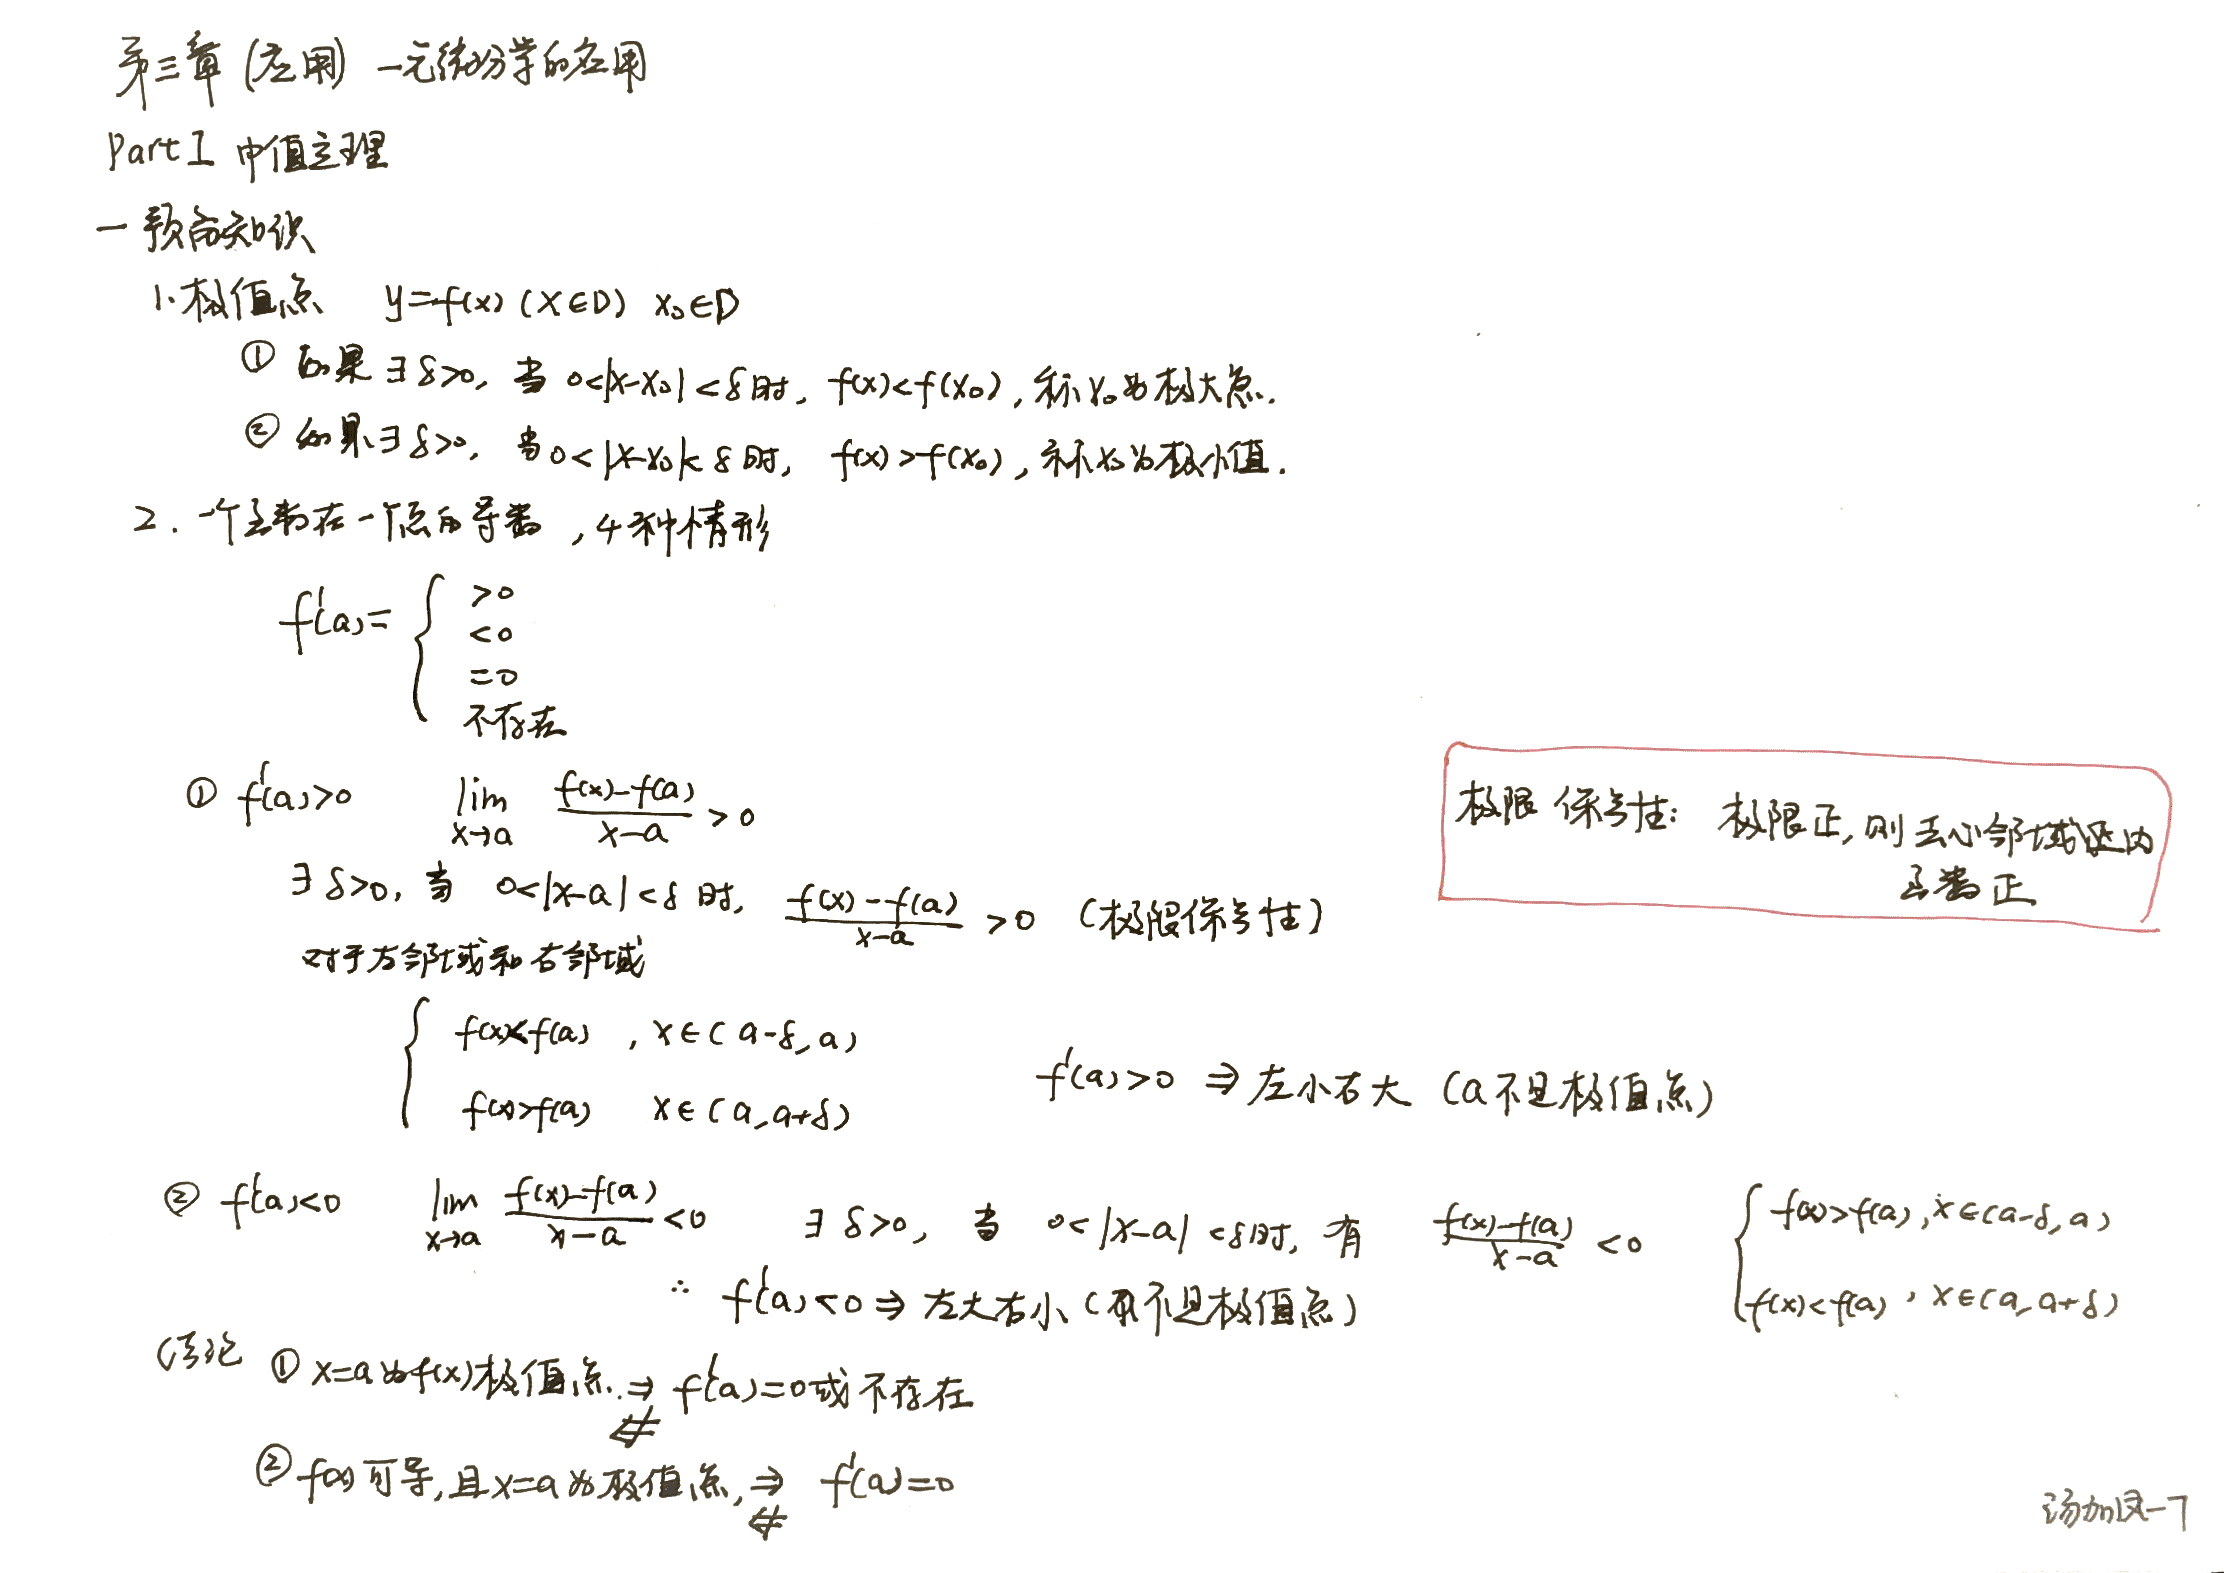 第三章 (应用) 一元微分学的应用
Part I 中值定理
一 预备知识
1. 极值点 y=f(x) (x∈D) x₀∈D
① 如果∃δ>0, 当 0<|x-x₀|<δ时, f(x)<f(x₀), 称x₀为极大点.
② 如果∃δ>0, 当0<|x-x₀|<δ时, f(x)>f(x₀), 称x₀为极小值.
2. 一个函数在一个点的导数, 4种情形
f'(a)= { >0
<0
=0
不存在
① f'(a)>0 lim x→a (f(x)-f(a))/(x-a) > 0
极限保号性: 极限正, 则去心邻域区内
函数正
∃δ>0, 当 0<|x-a|<δ时, (f(x)-f(a))/(x-a) >0 (极限保号性)
对于左邻域和右邻域
{ f(x)<f(a), x∈(a-δ, a)
f(x)>f(a) x∈(a, a+δ)
f'(a)>0 ⇒ 左小右大 (a不是极值点)
② f'(a)<0 lim x→a (f(x)-f(a))/(x-a) <0 ∃δ>0, 当 0<|x-a|<δ时, 有 (f(x)-f(a))/(x-a) <0 { f(x)>f(a), x∈(a-δ, a)
f(x)<f(a), x∈(a, a+δ)
∴ f'(a)<0 ⇒ 左大右小 (不是极值点)
结论 ① x=a为f(x)极值点. ⇒ f'(a)=0或不存在
⇍
② f(x)可导, 且x=a为极值点, ⇒ f'(a)=0
⇍
汤加凤-7